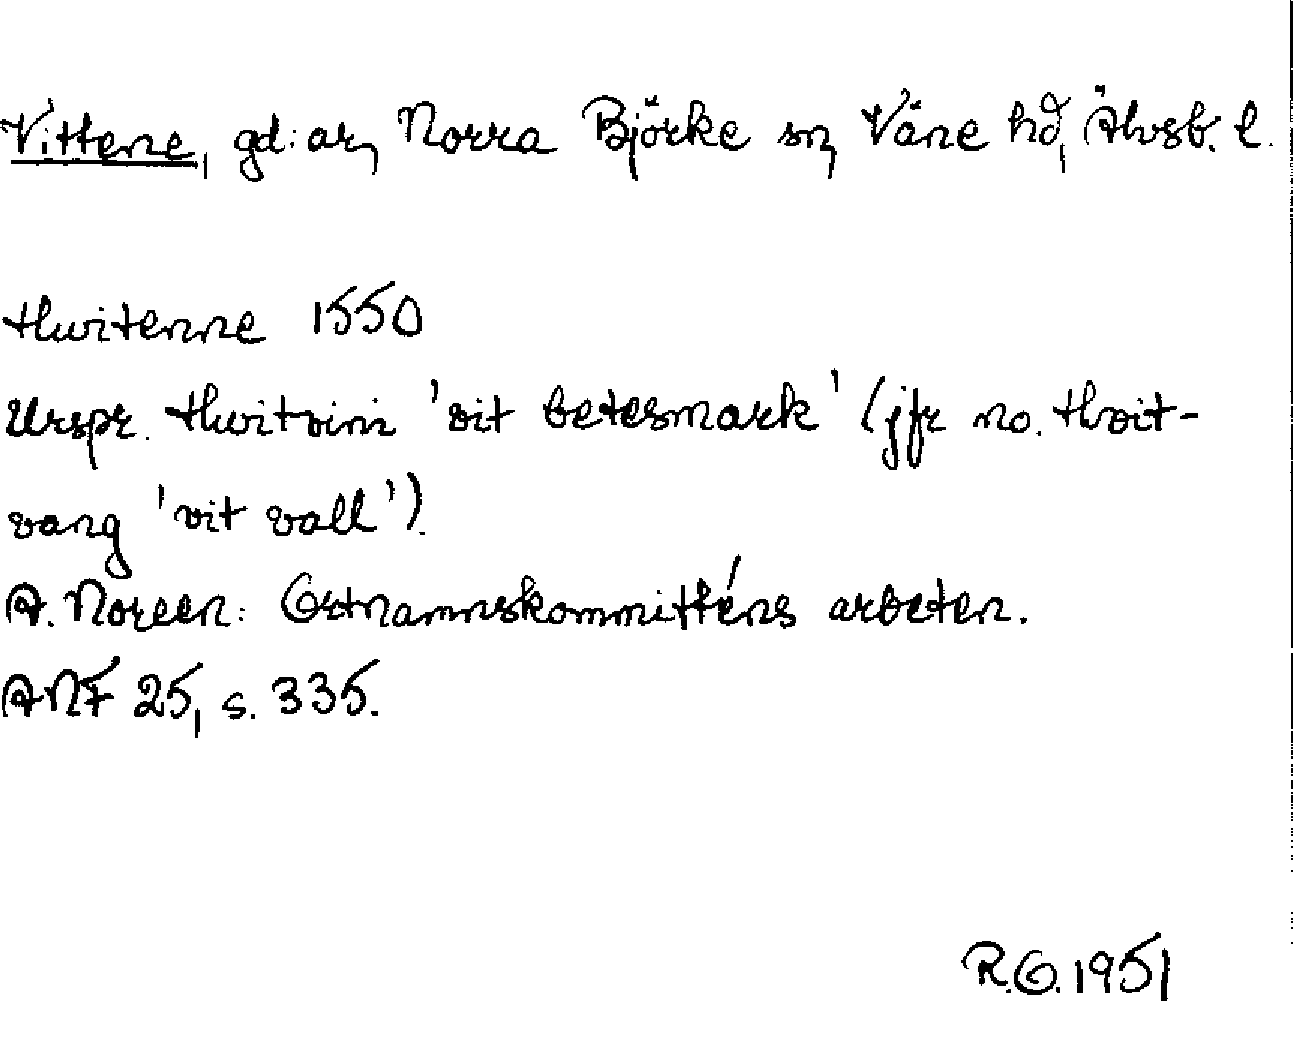 Vittene, gd:ar, Norra Björke sn, Väne hd, Älvsb. l.
Hwitenne 1550
Urspr. Hwitvini 'vit betesmark' (jfr no. Hvit-
vang 'vit vall').
A. Noreen: Ortnamnskommitténs arbeten.
ANF 25, s. 335.
R.O. 1951